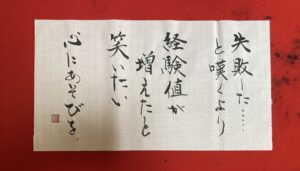 失敗した……
と嘆くより
経験値が
増えたと
笑いたい
心にあそびを、